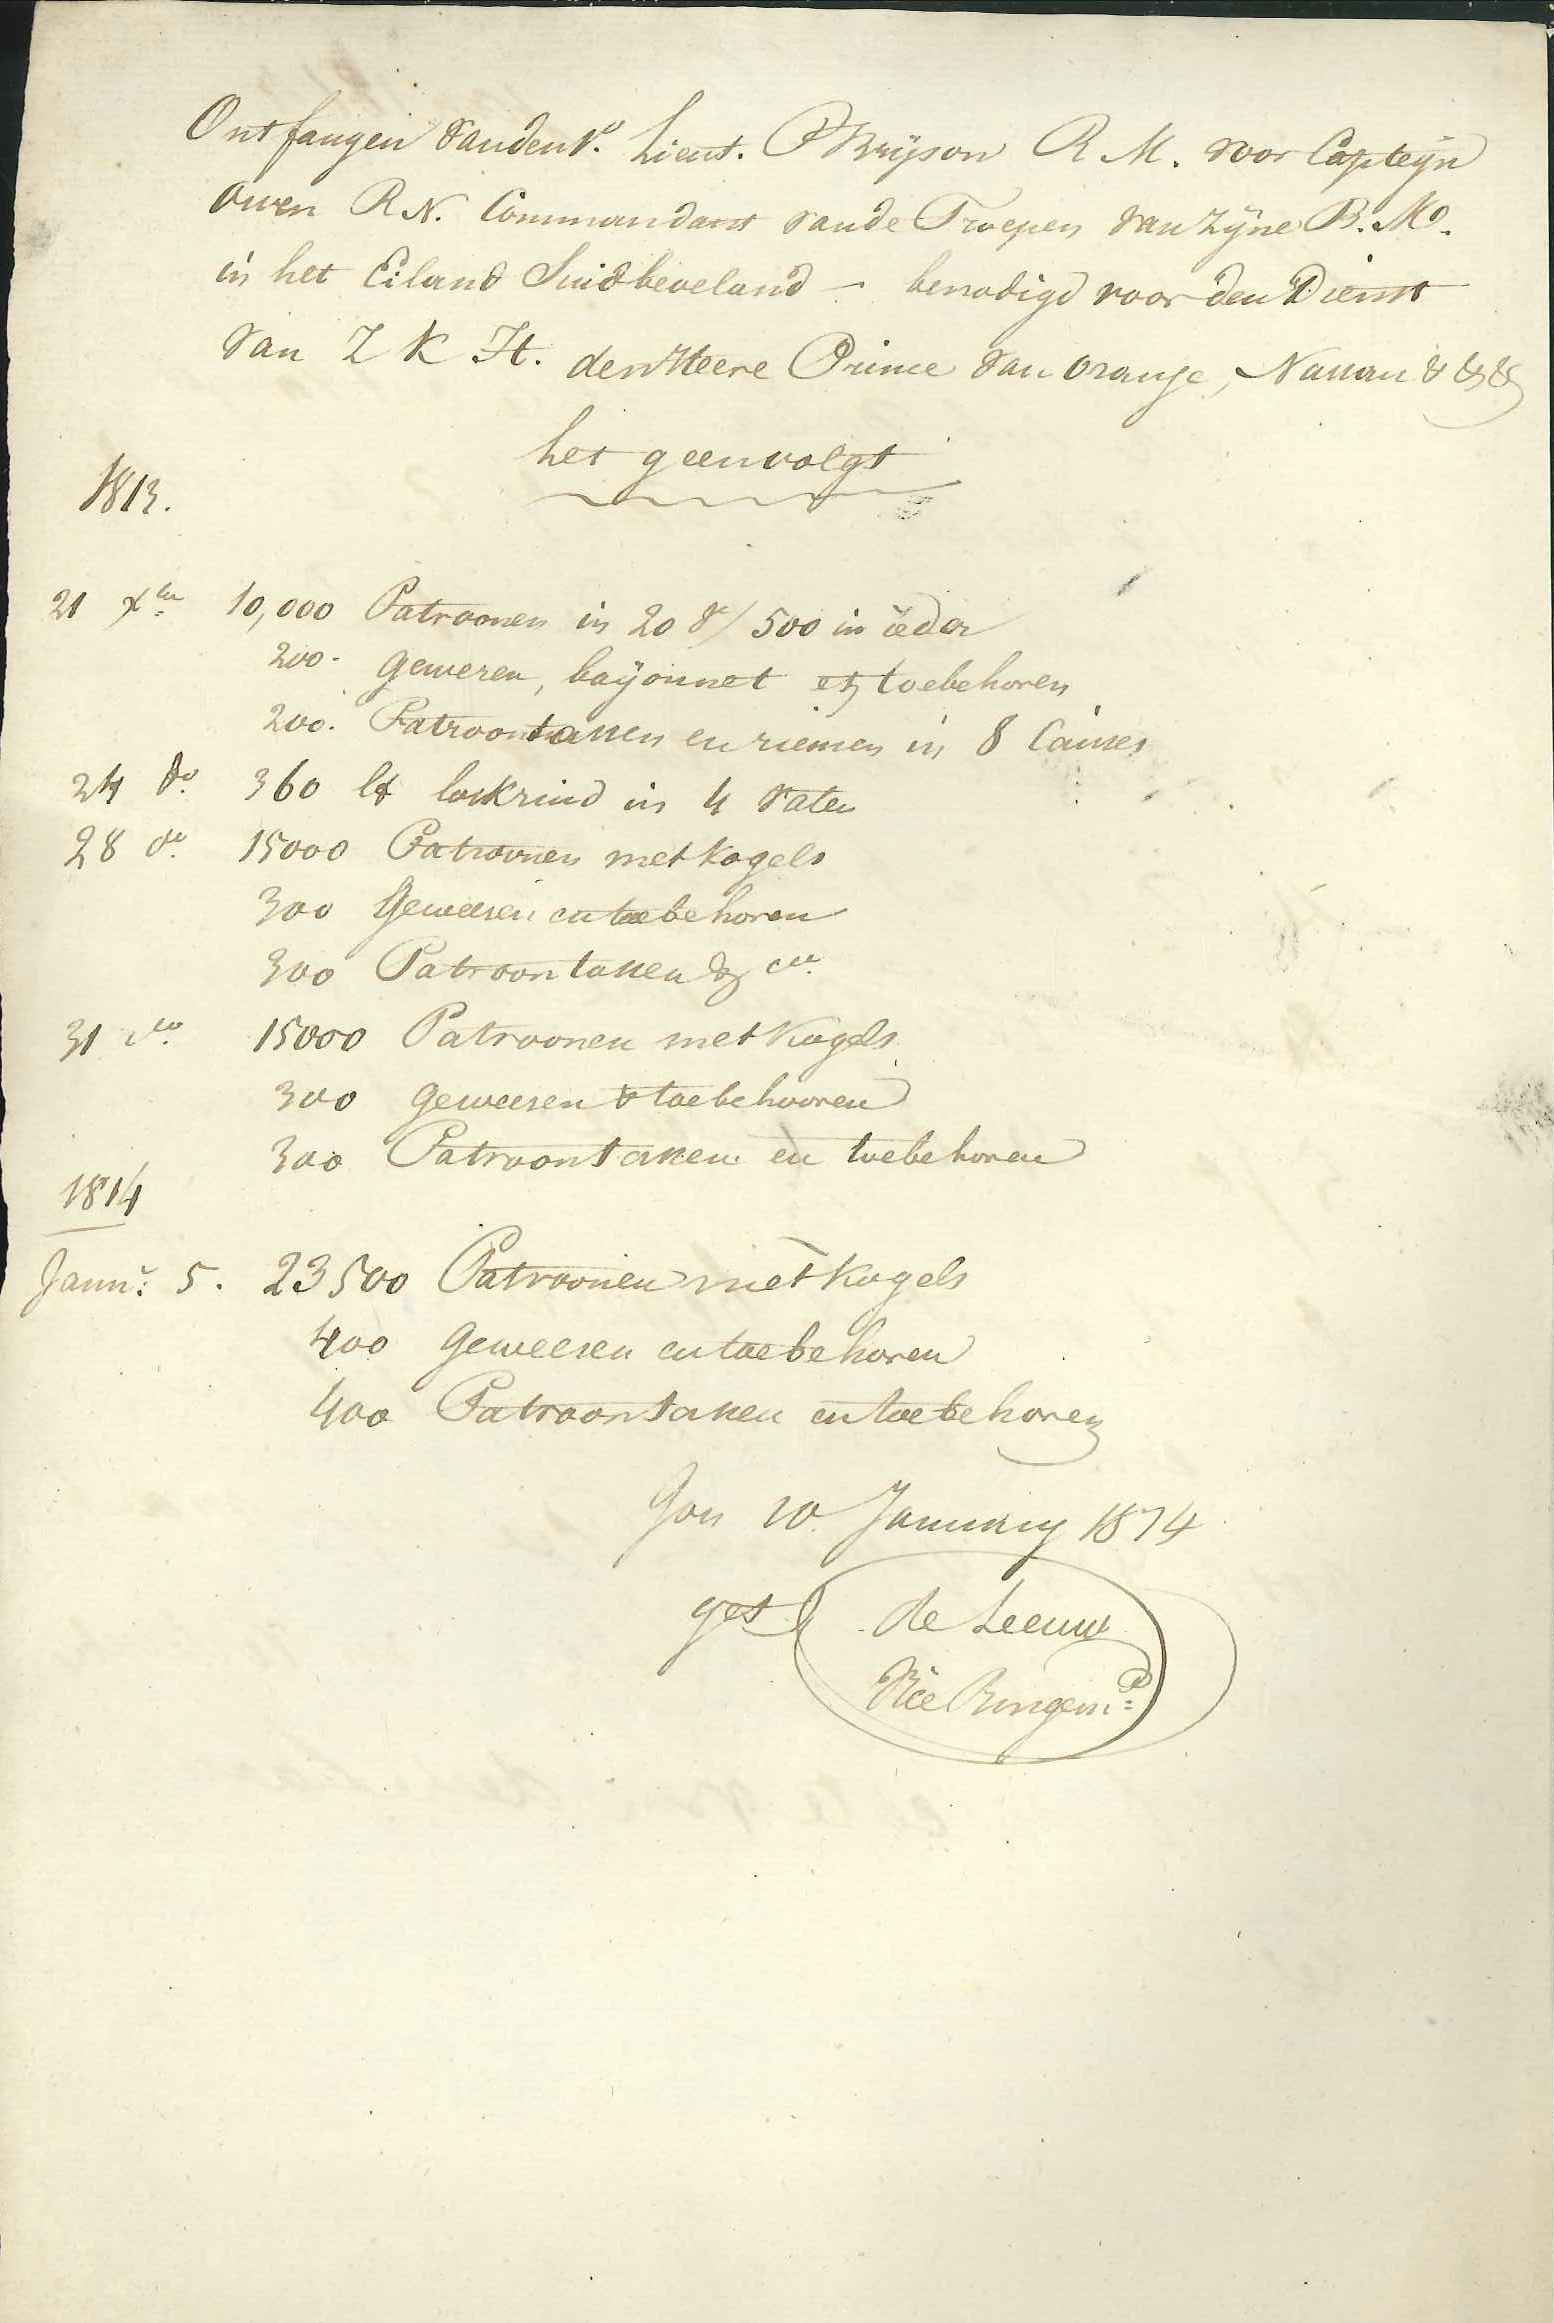 Ontfangen van den Hr. Lieut. P Bryson R M. voor Capteijn
Owen R N. Commandant van de Troepen van Zijne B. M.
in het Eiland Suidbeveland – benodigd voor den Dienst
van Z K H. den Heere Prince van Orange, Nassau & & &
het geen volgt
1813.
21 xber 10,000 Patroonen in 20 vt/ 500 in ieder
200. geweren, baÿonnet en toebehoren
200. Patroontassen en riemen in 8 Caisses
24 do. 360 lb in 4 vaten
28 do. 15000 Patroonen met kogels
300 Geweeren en toebehoren
300 Patroontassen &
31 do. 15000 Patroonen met Kogels
300 geweeren & toebehooren
300 Patroontassen en toebehoren
1814
Jannr: 5. 23500 Patroonen met kogels
400 geweeren en toebehoren
400 Patroontassen en toebehoren
Goes 10. January 1814
get de Leeuw
Vice Burgemr: